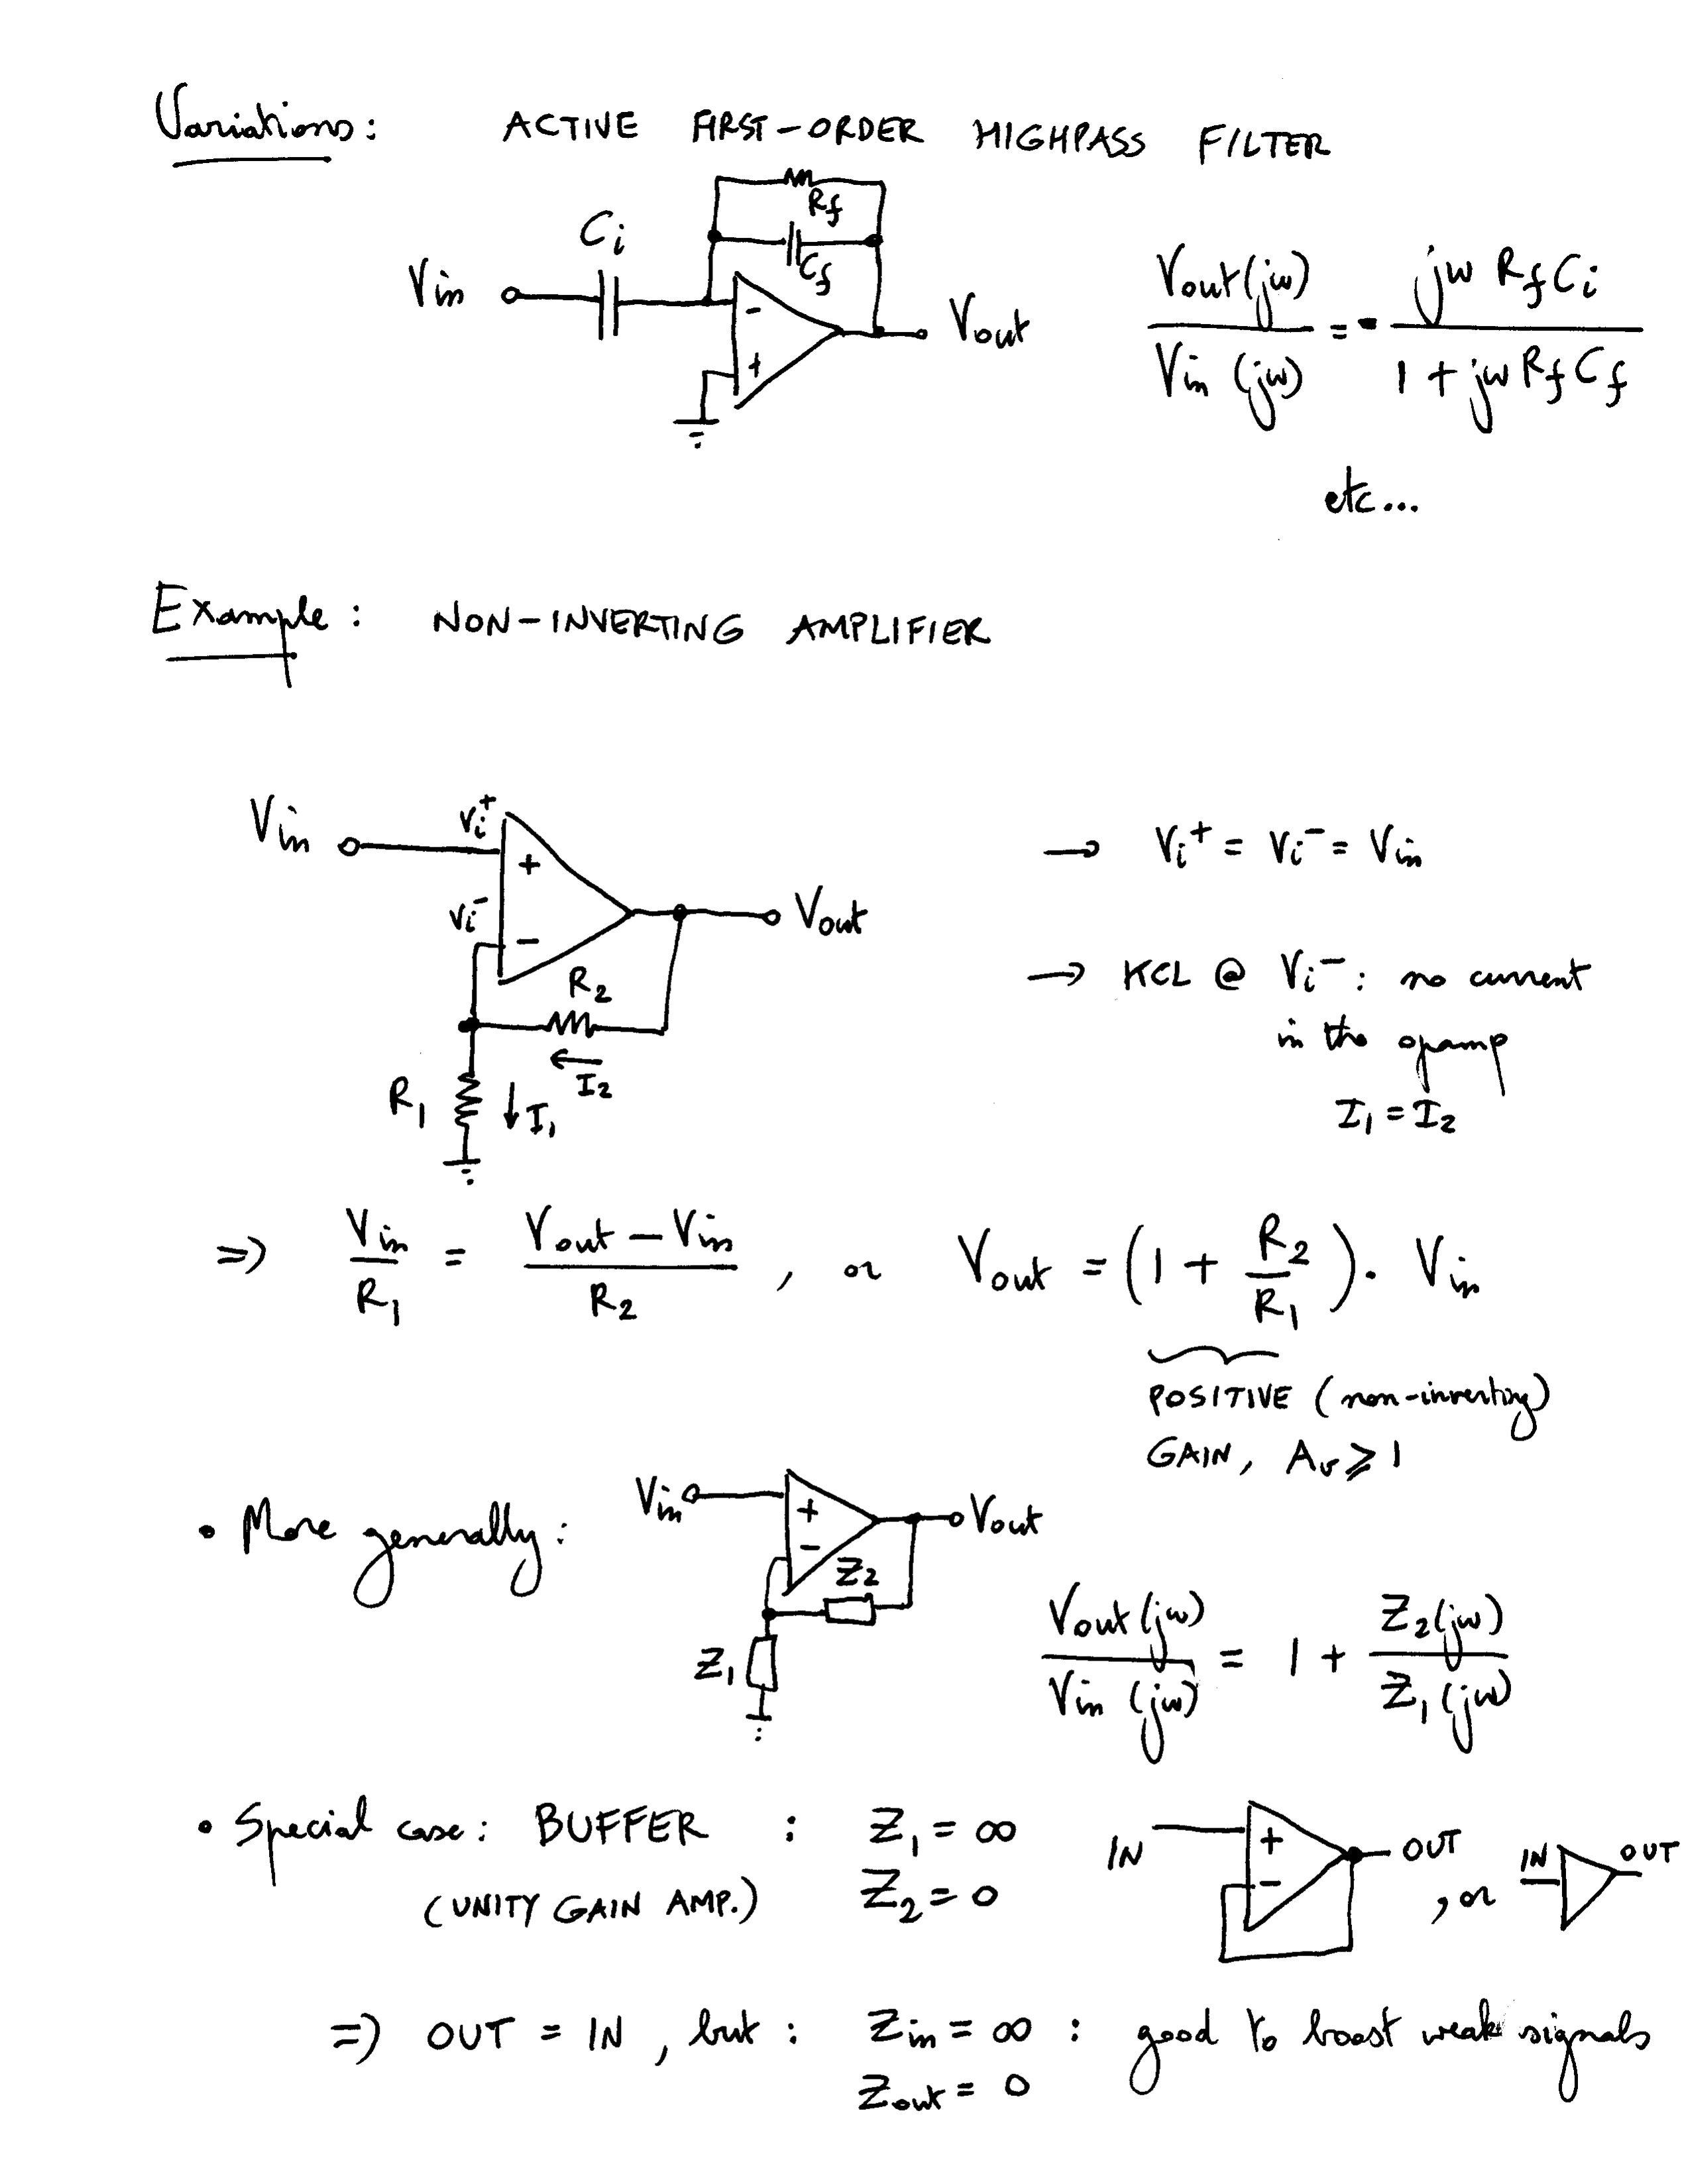 Variations: ACTIVE FIRST-ORDER HIGHPASS FILTER
Rf
Ci
Cf
Vin
-
+
Vout
Vout(jω) / Vin(jω) = - jω Rf Ci / 1 + jω Rf Cf
etc...
Example: NON-INVERTING AMPLIFIER
Vin
Vi+
+
Vi-
-
Vout
R2
I2
R1
I1
→ Vi+ = Vi- = Vin
→ KCL @ Vi-: no current
in the opamp
I1 = I2
⇒ Vin / R1 = Vout - Vin / R2, or Vout = (1 + R2 / R1) · Vin
POSITIVE (non-inverting)
GAIN, Av ⩾ 1
• More generally:
Vin
+
-
Vout
Z2
Z1
Vout(jω) / Vin(jω) = 1 + Z2(jω) / Z1(jω)
• Special case: BUFFER : Z1 = ∞
(UNITY GAIN AMP.) Z2 = 0
IN
+
-
OUT
, or
IN
OUT
⇒ OUT = IN, but: Zin = ∞ : good to boost weak signals
Zout = 0